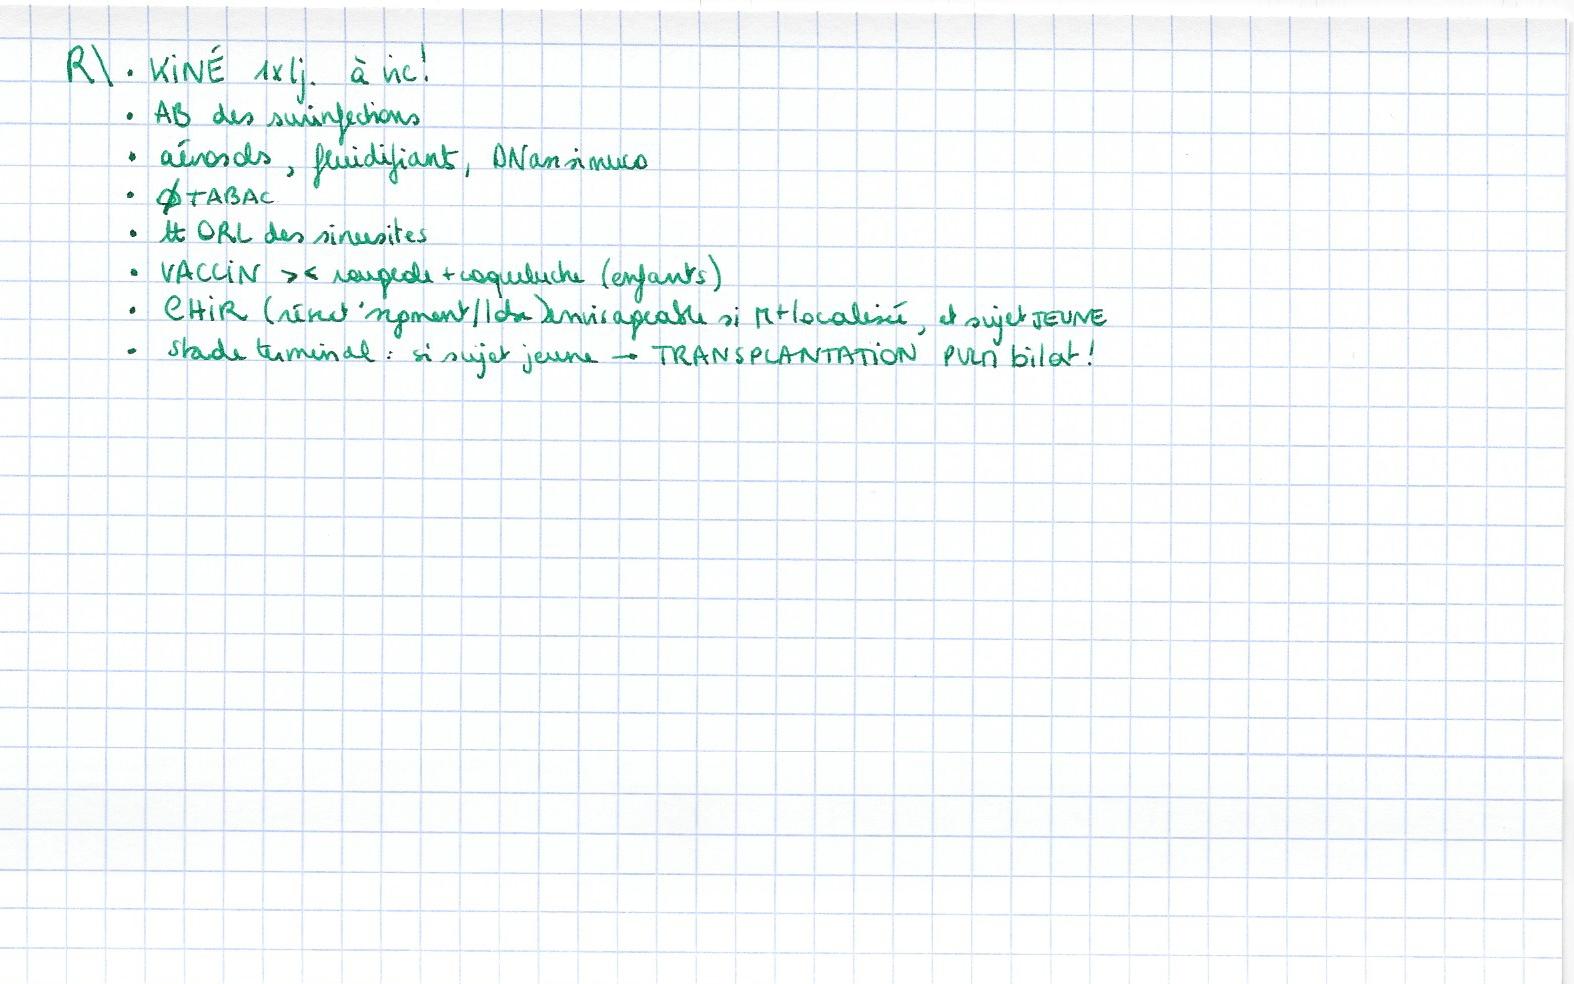 R\ . KiNÉ 1x/j. à vie!
. AB des surinfections
. aérosols, fluidifiant, DNansimuco
. ∅ TABAC
. tt ORL des sinusites
. VACCiN >< rougeole + coqueluche (enfants)
. CHiR (résect° segment/lobe) envisageable si M+ localisée, et sujet JEUNE
. stade terminal : si sujet jeune → TRANSPLANTATiON PULM bilat!